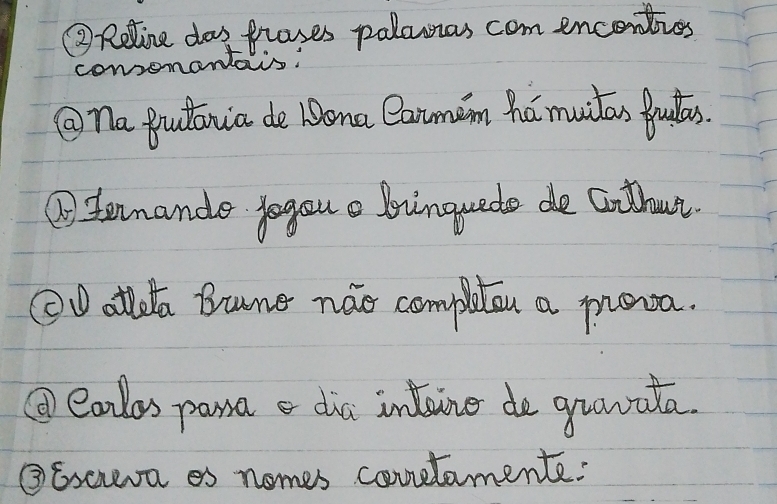 ② Retire das frases palavras com encontros
consonantais:
ⓐ Na frutaria de Dona Carmém há muitas frutas.
ⓑ Fernando jogou o brinquedo de Arthur.
ⓒ O atleta Bruno não completou a prova.
ⓓ Carlos passa o dia inteiro de gravata.
③ Escreva os nomes corretamente: